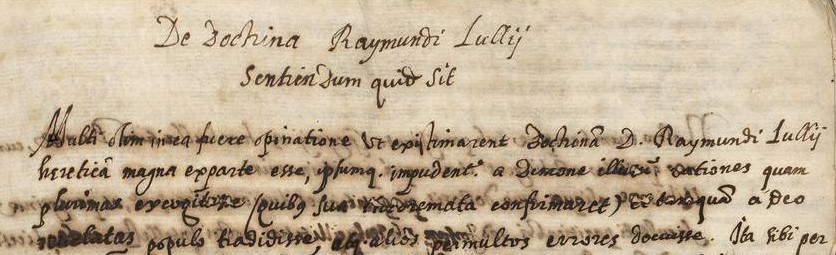 De Doctrina Raymundi Lullij
Sentiendum quid sit
Multi olim in ea fuere opinatione ut existimarent Doctrinā D. Raymundi Lullij
hereticā magna exparte esse, ipsumq. impudentr a demone illusū rationes quam
plurimas excogitasse (quibus sua theoremata confirmaret) et tanquā a Deo
revelatas populo tradidisse, atq. alios permultos errores docuisse. Ita sibi per